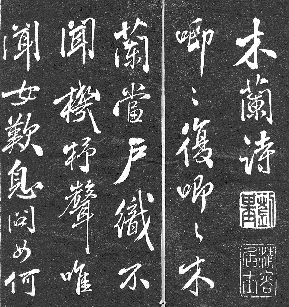 木蘭诗
唧〻復唧〻木
蘭當户織不
聞機杼聲唯
聞女歎息問女何